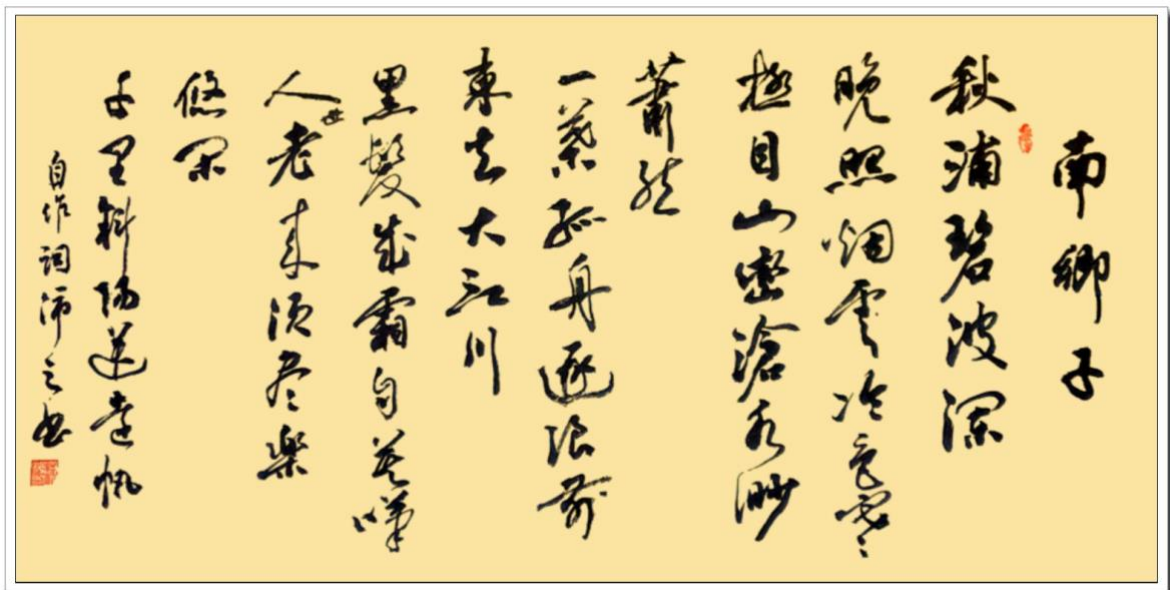 南鄉子
秋浦碧波澜
晚照烟雲冷色寒
極目山巒滄水渺
蕭然
一葉孤舟逐浪前
東去大江川
黑髮成霜自莫嘆
人世老来須尽樂
悠闲
千里斜陽送遠帆
自作詞沛之書